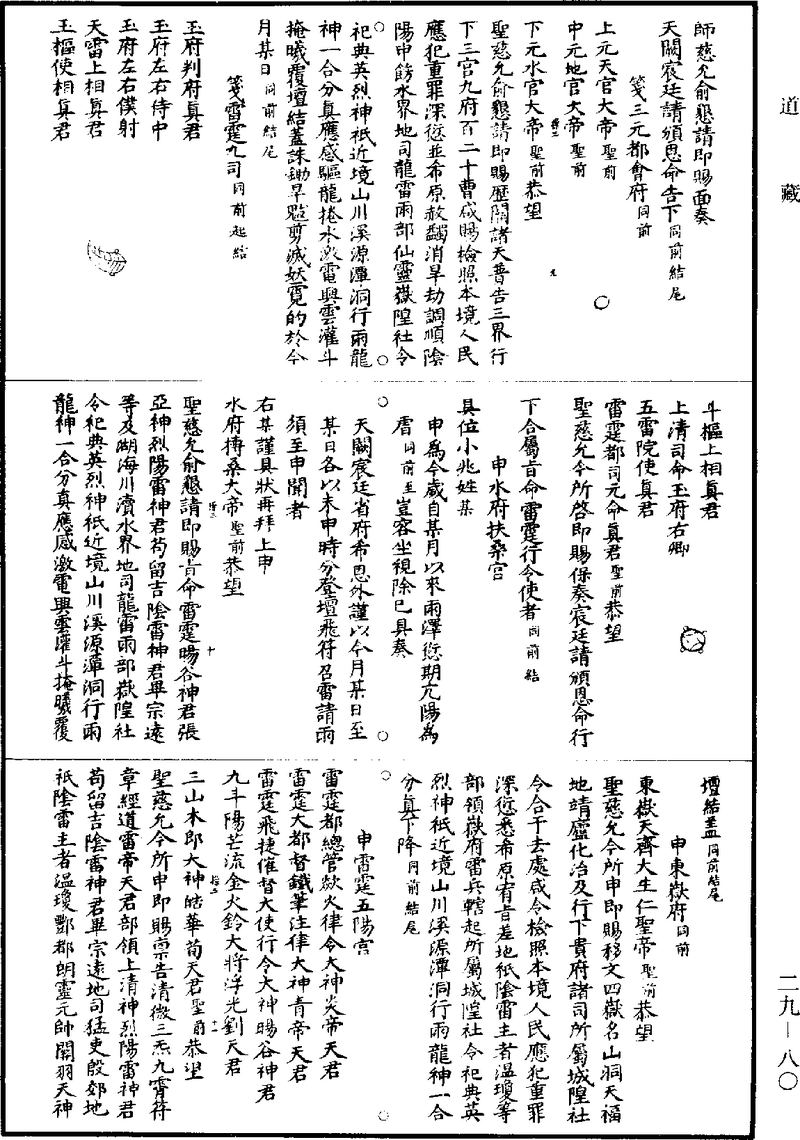 道藏
師慈允俞懇請即賜面奏
天闕宸廷請頒恩命告下同前結尾
箋三元都會府同前
上元天官大帝聖前
中元地官大帝聖前
下元水官大帝聖前恭望
聖慈允俞懇請即賜歷關諸天普告三界行
下三宮九府百二十曹咸賜檢照本境人民
應犯重罪深愆並希原赦蠲消旱劫調順陰
陽申飭水界地司龍雷雨部仙靈嶽隍社令
祀典英烈神祇近境山川溪源潭洞行雨龍
神一合分真應感驅龍捲水激電興雲灌斗
掩曦覆壇結蓋誅鋤旱魃剪滅妖霓的於今
月某日同前結尾
箋雷霆九司同前起結
玉府判府真君
玉府左右侍中
玉府左右僕射
天雷上相真君
玉樞使相真君
斗樞上相真君
上清司命玉府右卿
五雷院使真君
雷霆都司元命真君聖前恭望
聖慈允令所啓即賜保奏宸廷請頒恩命行
下合屬旨命雷霆行令使者同前結
申水府扶桑宮
具位小兆姓某
申為今歲自某月以來雨澤愆期亢陽為
虐同前至豈容坐視除已具奏
天闕宸廷省府希恩外謹以今月某日至
某日各以未申時分登壇飛符召雷請雨
須至申聞者
右某謹具狀再拜上申
水府搏桑大帝聖前恭望
聖慈允俞懇請即賜旨命雷霆暘谷神君張
亞神烈陽雷神君苟留吉陰雷神君畢宗遠
等及湖海川瀆水界地司龍雷雨部嶽隍社
令祀典英烈神祇近境山川溪源潭洞行雨
龍神一合分真應感激電興雲灌斗掩曦覆
壇結蓋同前結尾
申東嶽府同前
東嶽天齊大生仁聖帝聖前恭望
聖慈允令所申即賜移文四嶽名山洞天福
地靖廬化治及行下貴府諸司所屬城隍社
令合干去處咸令檢照本境人民應犯重罪
深愆悉希原宥旨差地祇陰雷主者溫瓊等
部領嶽府雷兵轄起所屬城隍社令祀典英
烈神祇近境山川溪源潭洞行雨龍神一合
分真下降同前結尾
申雷霆五陽宮
雷霆都總管欻火律令大神炎帝天君
雷霆大都督鐵筆注律大神青帝天君
雷霆飛捷催督大使行令大神暘谷神君
九斗陽芒流金火鈴大將浮光劉天君
三山木郎大神皓華荀天君聖前恭望
聖慈允令所申即賜稟告清微三炁九霄符
章經道雷帝天君部領上清神烈陽雷神君
苟留吉陰雷神君畢宗遠地司猛吏殷郊地
祇陰雷主者溫瓊酆都朗靈元帥關羽天神
二九－八〇